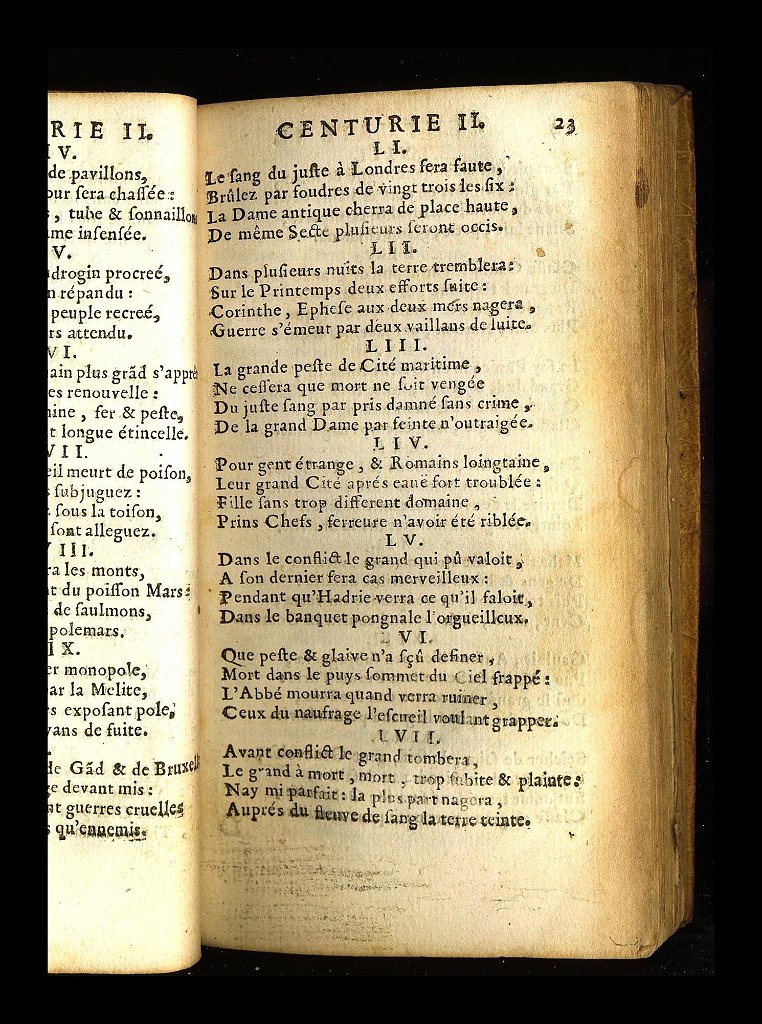 RIE II.
IV.
de pavillons,
our sera chassée:
, tube & sonnaillons
me insensée.
V.
drogin procreé,
n répandu:
peuple recreé,
rs attendu.
VI.
ain plus grãd s'appr
es renouvelle:
ine, fer & peste,
t longue étincelle.
VII.
eil meurt de poison,
s subjuguez:
sous la toison,
sont alleguez.
VIII.
ra les monts,
t du poisson Mars:
de saulmons,
polemars.
IX.
er monopole,
ar la Melite,
s exposant pole,
vans de fuite.
de Gãd & de Bruxell
e devant mis:
nt guerres cruelles
s qu'ennemis.
CENTURIE II. 23
LI.
Le sang du juste à Londres sera faute,
Brûlez par foudres de vingt trois les six:
La Dame antique cherra de place haute,
De même Secte plusieurs seront occis.
LII.
Dans plusieurs nuits la terre tremblera:
Sur le Printemps deux efforts suite:
Corinthe, Ephese aux deux mers nagera,
Guerre s'émeut par deux vaillans de luite.
LIII.
La grande peste de Cité maritime,
Ne cessera que mort ne soit vengée
Du juste sang par pris damné sans crime,
De la grand Dame par feinte n'outraigée.
LIV.
Pour gent étrange, & Romains loingtaine,
Leur grand Cité aprés eauë fort troublée:
Fille sans trop different domaine,
Prins Chefs, ferreure n'avoir été riblée.
LV.
Dans le conflict le grand qui pû valoit,
A son dernier fera cas merveilleux:
Pendant qu'Hadrie verra ce qu'il faloit,
Dans le banquet pongnale l'orgueilleux.
VI.
Que peste & glaive n'a sçû definer,
Mort dans le puys sommet du Ciel frappé:
L'Abbé mourra quand verra ruiner,
Ceux du naufrage l'escueil voulant grapper.
LVII.
Avant conflict le grand tombera,
Le grand à mort, mort, trop subite & plainte:
Nay mi parfait: la plus part nagera,
Auprés du fleuve de sang la terre teinte.